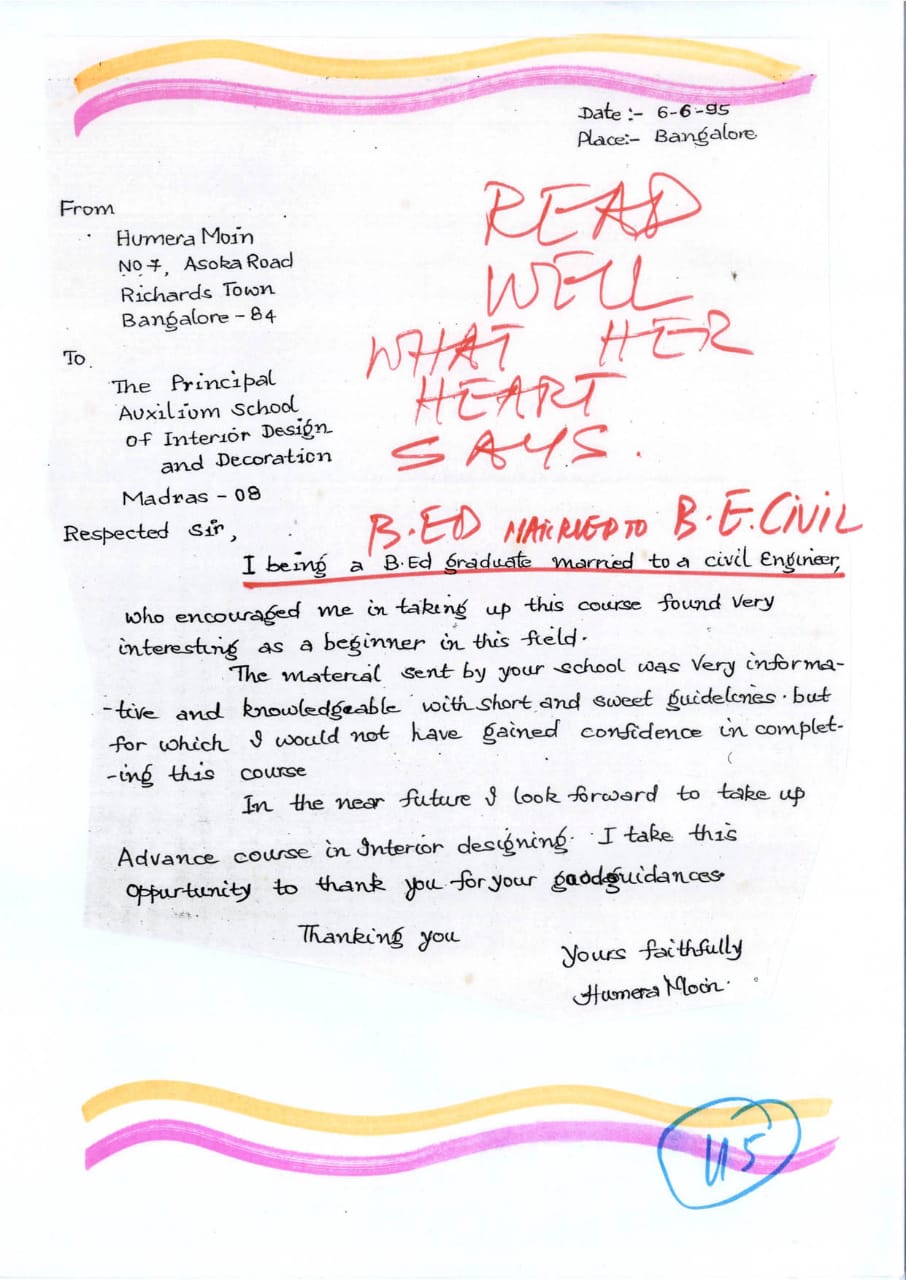 Date :- 6-6-95
Place:- Bangalore
READ
WELL
WHAT HER
HEART
SAYS.
From
Humera Moin
NO 7, Asoka Road
Richards Town
Bangalore - 84
To
The Principal
Auxilium School
of Interior Design
and Decoration
Madras - 08
Respected Sir,
B.ED MARRIED TO B.E.CIVIL
I being a B.Ed graduate married to a civil Engineer,
who encouraged me in taking up this course found very
interesting as a beginner in this field.
The material sent by your school was very informa-
-tive and knowledgeable with short and sweet guidelines. but
for which I would not have gained confidence in complet-
-ing this course
In the near future I look forward to take up
Advance course in Interior designing. I take this
oppurtunity to thank you for your good guidances.
Thanking you
Yours faithfully
Humera Moin.